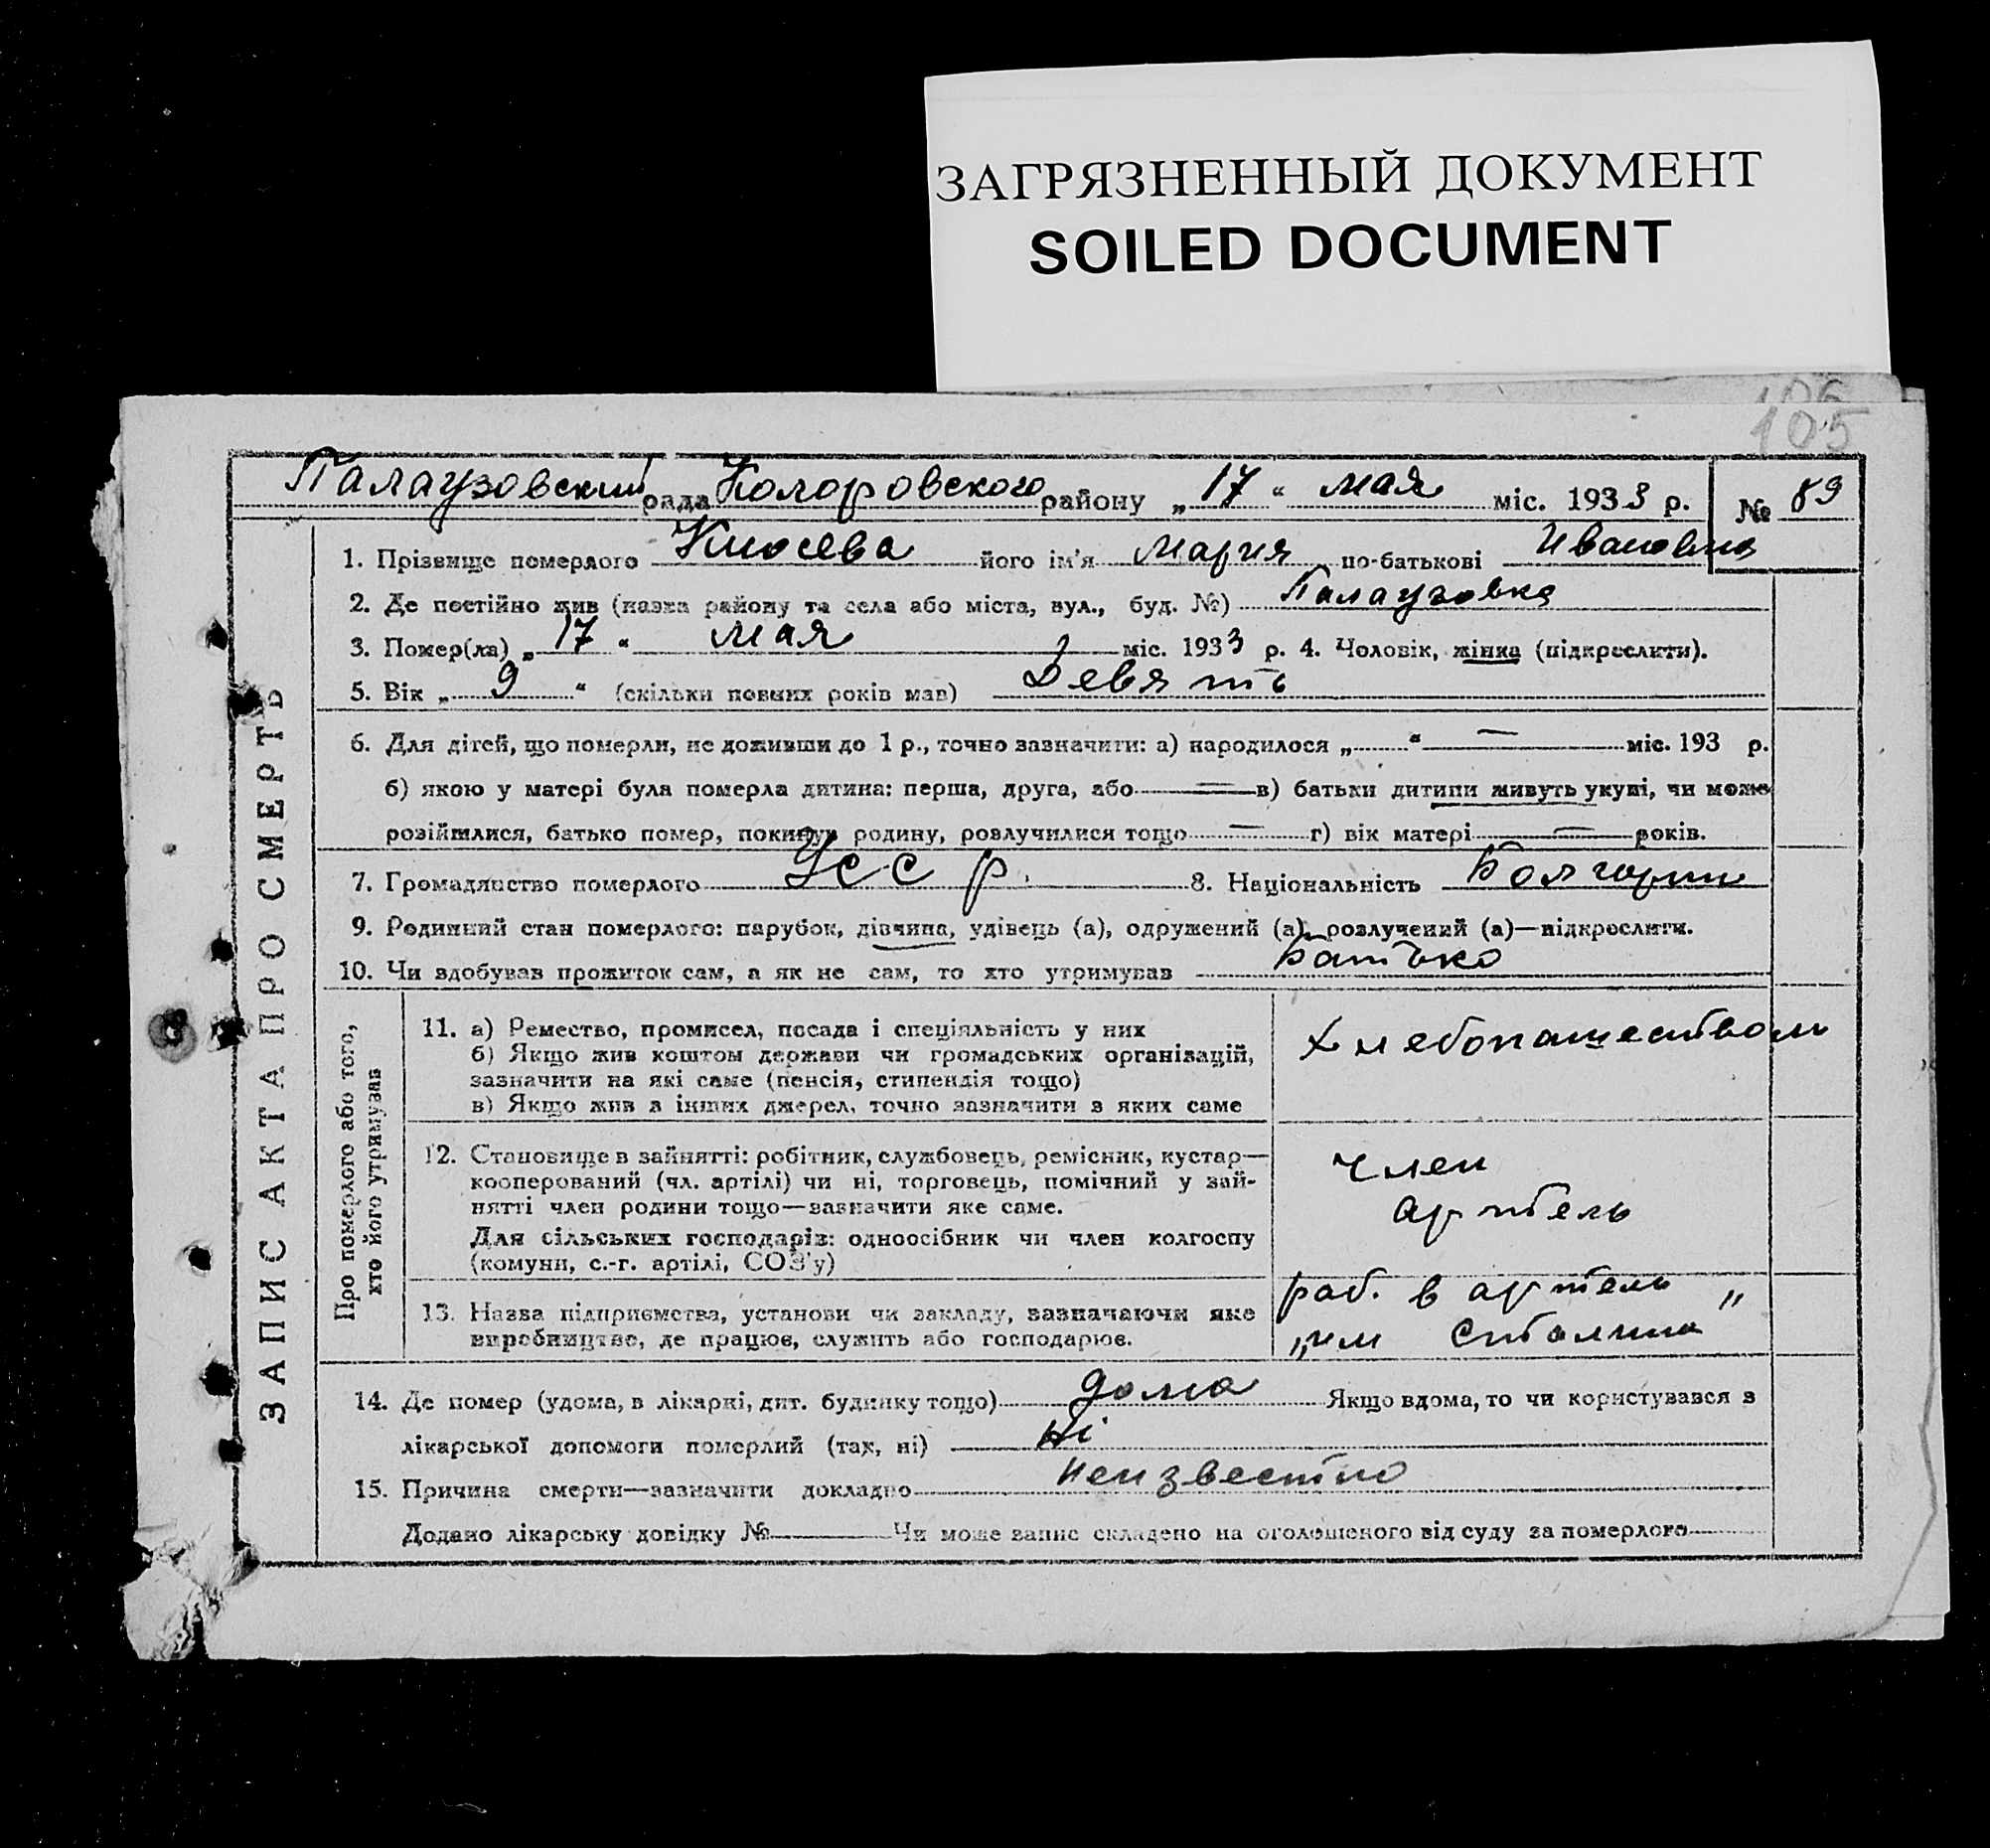 ЗАГРЯЗНЕННЫЙ ДОКУМЕНТ
SOILED DOCUMENT
105
Палаузовский рада Коларовского району „ 17 “ мая міс. 1933 р. № 89
ЗАПИС АКТА ПРО СМЕРТЬ
1. Прізвище померлого Киосева його ім'я Мария по-батькові Ивановна
2. Де постійно жив (назва району та села або міста, вул., буд. №) Палаузовка
3. Помер(ла) „ 17 “ мая міс. 1933 р. 4. Чоловік, жінка (підкреслити).
5. Вік „ 9 “ (скільки повних років мав) Девять
6. Для дітей, що померли, не доживши до 1 р., точно зазначити: а) народилося „ “ — міс. 193 р.
б) якою у матері була померла дитина: перша, друга, або — в) батьки дитини живуть укупі, чи може
розійшлися, батько помер, покинув родину, розлучилися тощо — г) вік матері — років.
7. Громадянство померлого УССР. 8. Національність Болгарин
9. Родинний стан померлого: парубок, дівчина, удівець (а), одружений (а), розлучений (а)—підкреслити.
10. Чи здобував прожиток сам, а як не сам, то хто утримував Батько
Про померлого або того,
хто його утримував
11. а) Ремество, промисел, посада і спеціяльність у них
б) Якщо жив коштом держави чи громадських організацій,
зазначити на які саме (пенсія, стипендія тощо)
в) Якщо жив з інших джерел, точно зазначити з яких саме
Хлебопашеством
12. Становище в зайнятті: робітник, службовець, ремісник, кустар—
кооперований (чл. артілі) чи ні, торговець, помічний у зай-
нятті член родини тощо—зазначити яке саме.
Для сільських господарів: одноосібник чи член колгоспу
(комуни, с.-г. артілі, СОЗ'у)
член
артель
13. Назва підприємства, установи чи закладу, зазначаючи яке
виробництво, де працює, служить або господарює.
раб. в артель „
„им Сталина
14. Де помер (удома, в лікарні, дит. будинку тощо) дома Якщо вдома, то чи користувався з
лікарської допомоги померлий (так, ні) Ні
15. Причина смерти—зазначити докладно неизвестно
Додано лікарську довідку № Чи може запис складено на оголошеного від суду за померлого